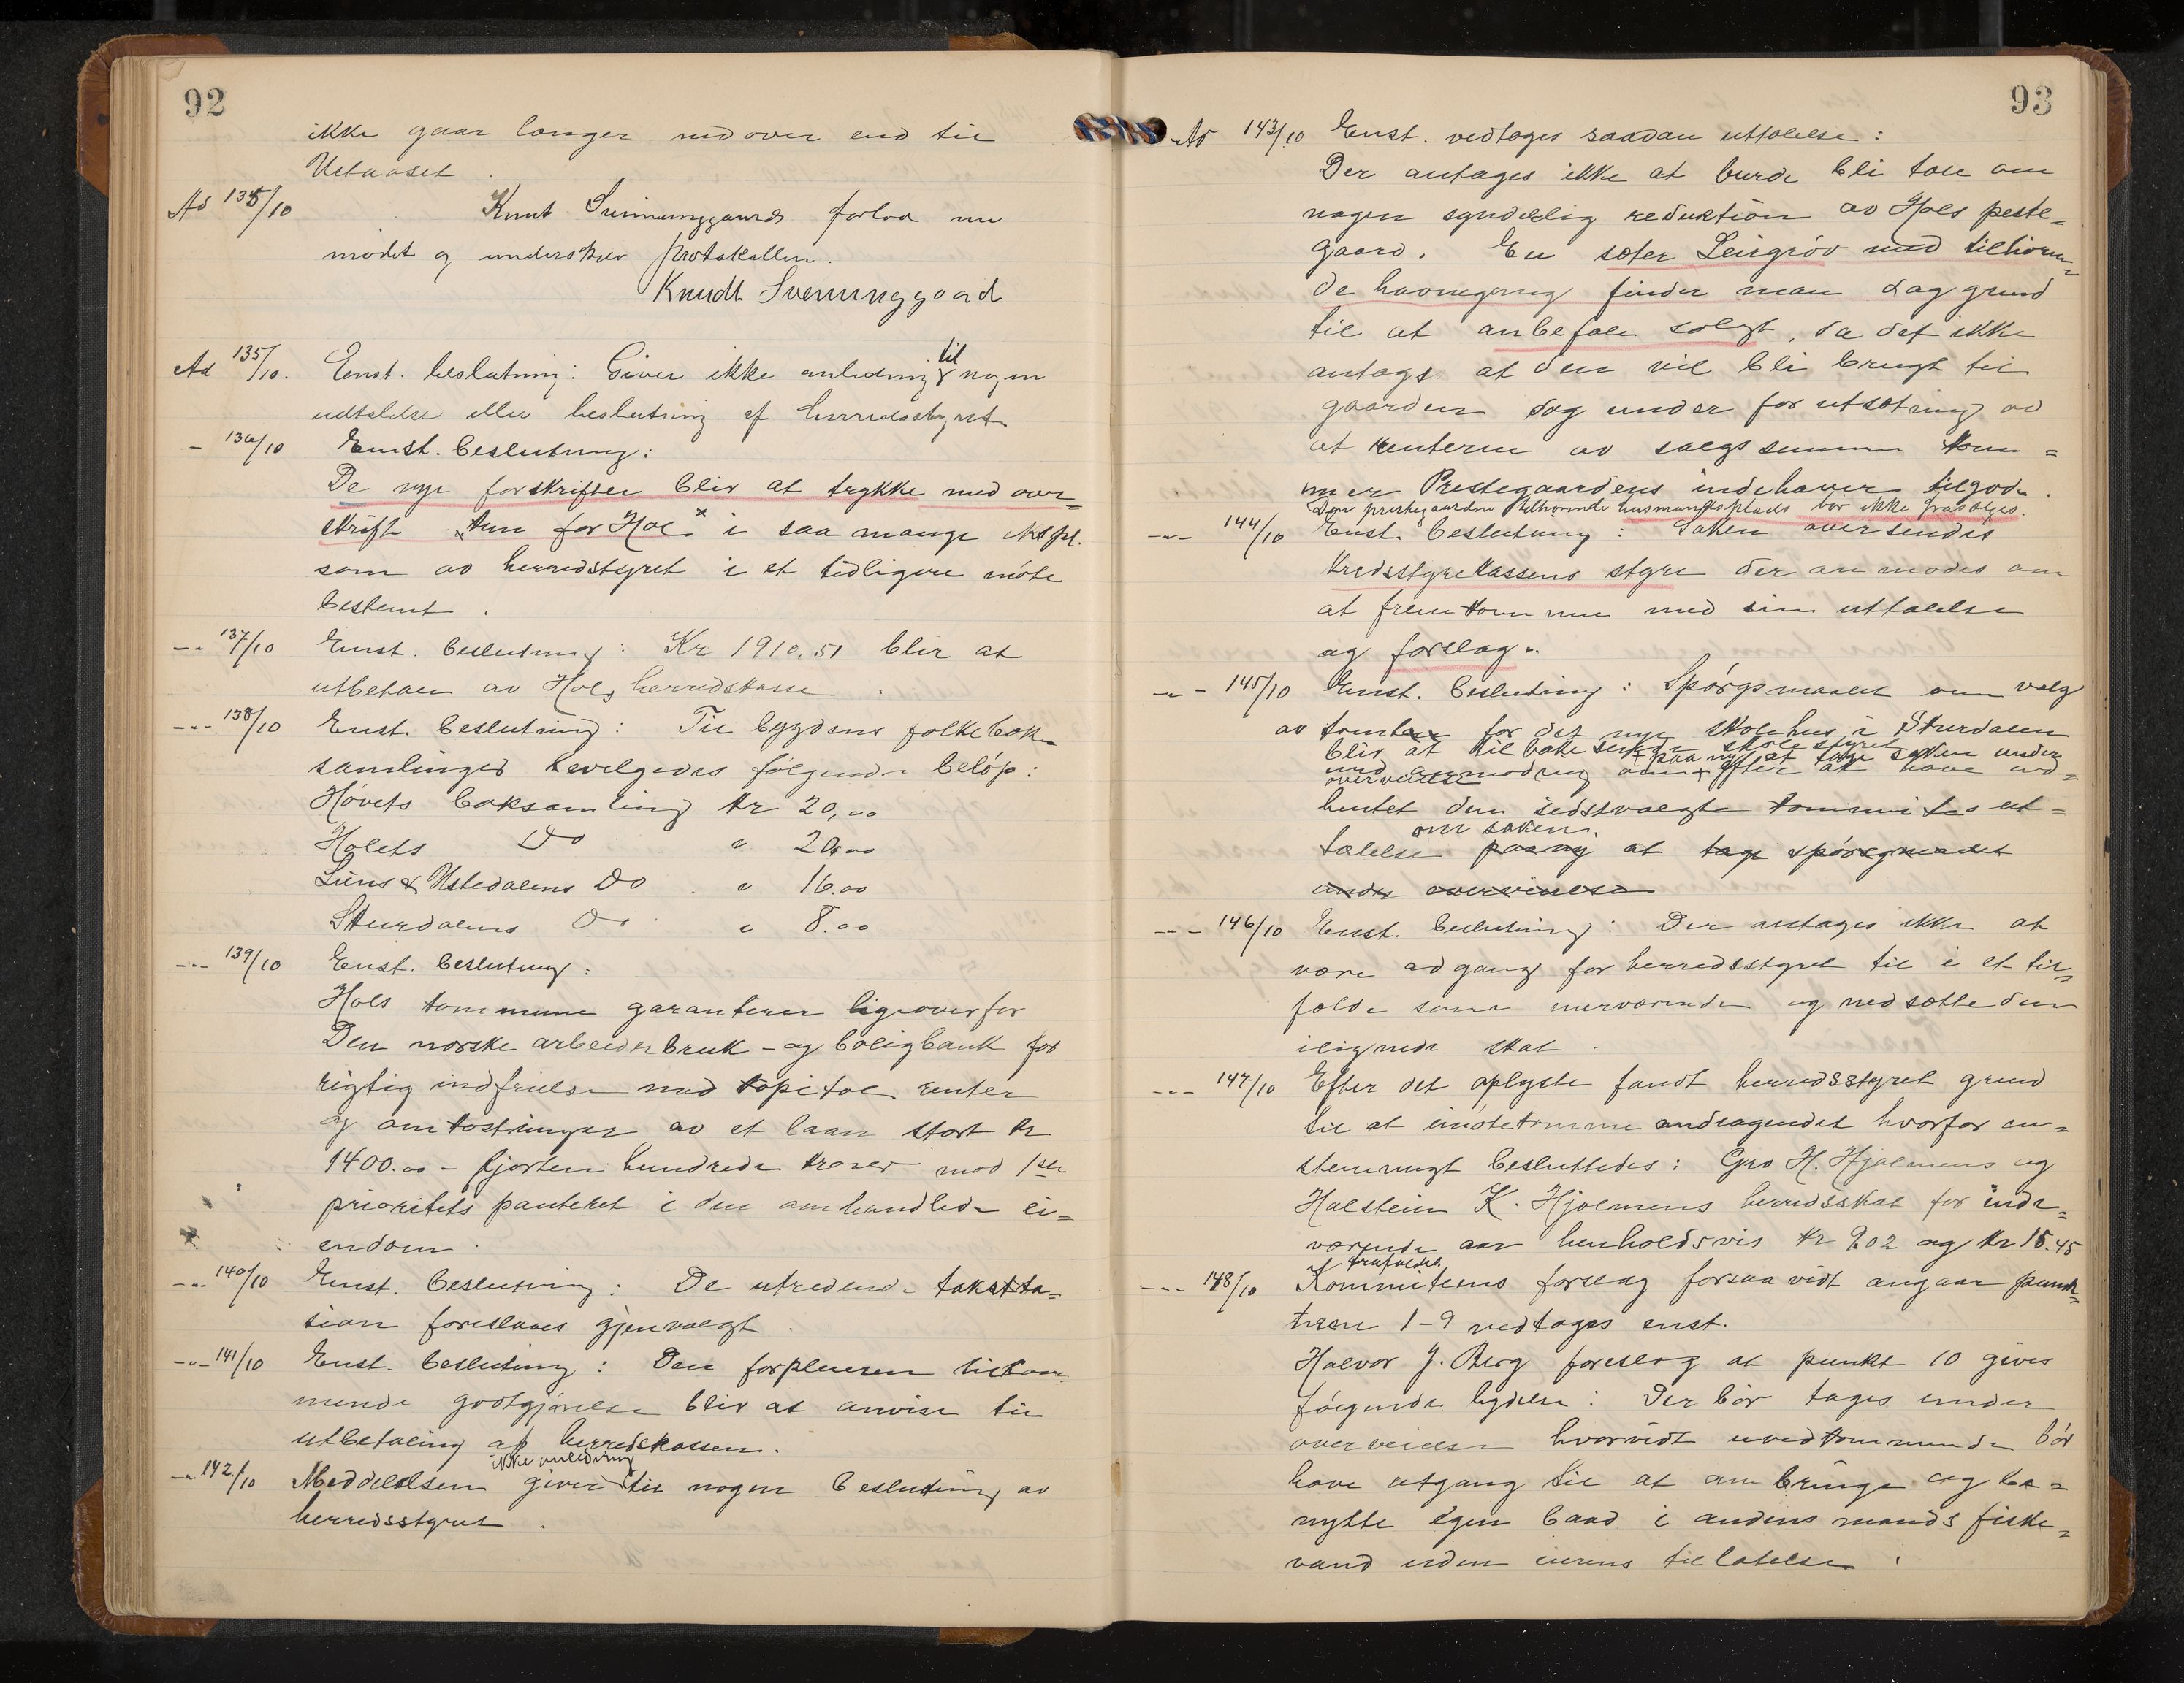 92
ikke gaar længer nedover end til
Ustaaset.
Ad 135/10 Knut Sveinunggaard forlod nu
mødet og underskrev protokollen.
Knudt Sveinunggaard
Ad 135/10. Enst. beslutning: Giver ikke anledning til nogen
udtalelse eller beslutning af herredsstyret
- 136/10 Enst. beslutning:
De nye forskrifter blir at trykke med over=
skrift kun for Hol i saa mange ekspl.
som av herredstyret i et tidligere møte
bestemt.
--- 137/10 Enst. beslutning: Kr 1910,51 blir at
utbetale av Hols herredskasse.
--- 138/10 Enst. beslutning: Til bygdens folkebok=
samlinger bevilgedes følgende beløp:
Høvets boksamling kr 20,00
Holets Do " 20,00
Liens & Ustedalens Do " 16.00
Skurdalens Do " 8.00
--- 139/10 Enst. beslutning:
Hols kommune garanterer ligeoverfor
Den norske arbeiderbruk - og boligbank for
rigtig indfrielse med kapital renter
og omkostninger av et laan stort kr
1400.00 - fjorten hundrede kroner mod 1ste
prioritets panteret i den omhandlede ei=
endom.
--- 140/10 Enst. beslutning: De utredende takstta=
sion foreslaaes gjenvalgt.
--- 141/10 Enst. beslutning: Den forpleieren tilkom=
mende godtgjørelse blir at anvise til
utbetaling af herredskassen.
ikke anledning
-"- 142/10 Meddelelsen giver til nogen beslutning av
herredsstyret.
93
Ad 143/10 Enst. vedtoges saadan uttalelse:
Der antages ikke at burde bli tale om
nogen synderlig reduktion av Hols preste=
gaard. En sæter Leirgrøv med tilhøren=
de havnegang finder man dog grund
til at anbefale solgt, da det ikke
antages at den vil bli brugt til
gaarden dog under forutsætning av
at renterne av salgssummen kom=
mer Prestegaardens indehaver tilgode.
Den prestegaarden tilhørende husmandsplads bør ikke frasælges.
-"- 144/10 Enst. beslutning: Saken oversendes
kredsstyrekassens styre der anmodes om
at fremkomme med sin uttalelse
og forslag.
-"- 145/10 Enst. beslutning: Spørgsmaalet om valg
av tomten for det nye skolehus i Skurdalen
blir at tilbakesende skolestyret
med anmodning om paa ny at tage saken under
overveielse efter at have ind=
hentet den sidstvalgte kommites ut=
om saken.
talelse paa ny at tage spørsgmaalet
under overveielse
--- 146/10 Enst. beslutning: Der antages ikke at
være adgang for herredsstyret til i et til=
fælde som nærværende og nedsætte den
ilignede skat.
--- 147/10 Efter det oplyste fandt herredsstyret grund
til at imøtekomme andragendet hvorfor en=
stemmigt besluttedes: Gro H. Hjelmens og
Halstein K. Hjelmens herredsskat for inde=
værende aar henholdsvis kr 9.02 og kr 15.45
frafaldes.
--- 148/10 Kommiteens forslag forsaavidt angaar punk=
terne 1-9 vedtoges enst.
Halvor J. Berg foreslog at punkt 10 gives
følgende lydelse: Der bør tages under
overveielse hvorvidt uvedkommende bør
have utgang til at anbringe og be=
nytte egen baad i andens mands fiske=
vand uden eierens tillatelse.